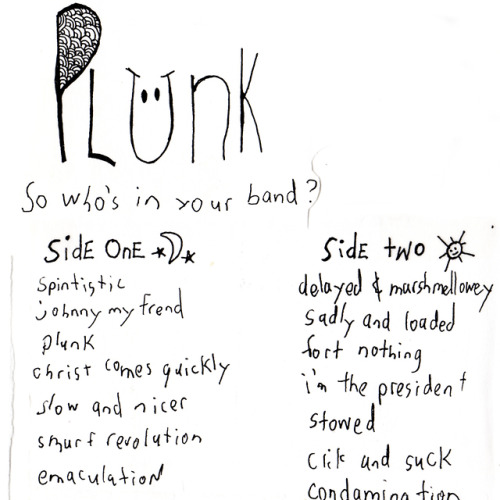 PLUnK
So who's in your band?
SidE OnE
spintistic
johnny my frend
plunk
christ comes quickly
slow and nicer
smurf revolution
emaculation
SidE two
delayed & marshmellowey
sadly and loaded
fort nothing
i'm the president
stowed
click and suck
condamination